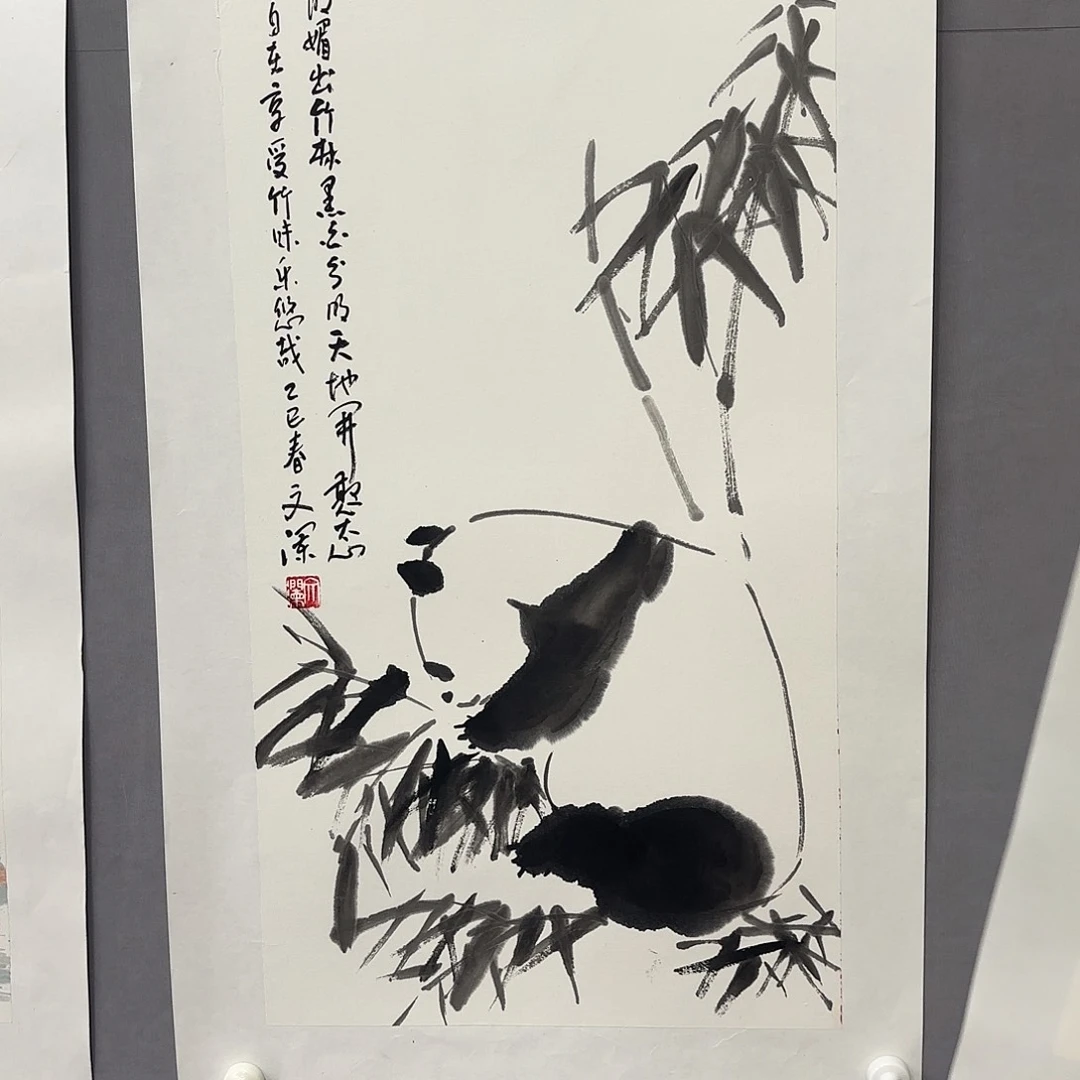 明媚出竹林黑白分明天地開憨态
自在享受竹味乐悠哉乙巳春文澜
文瀾